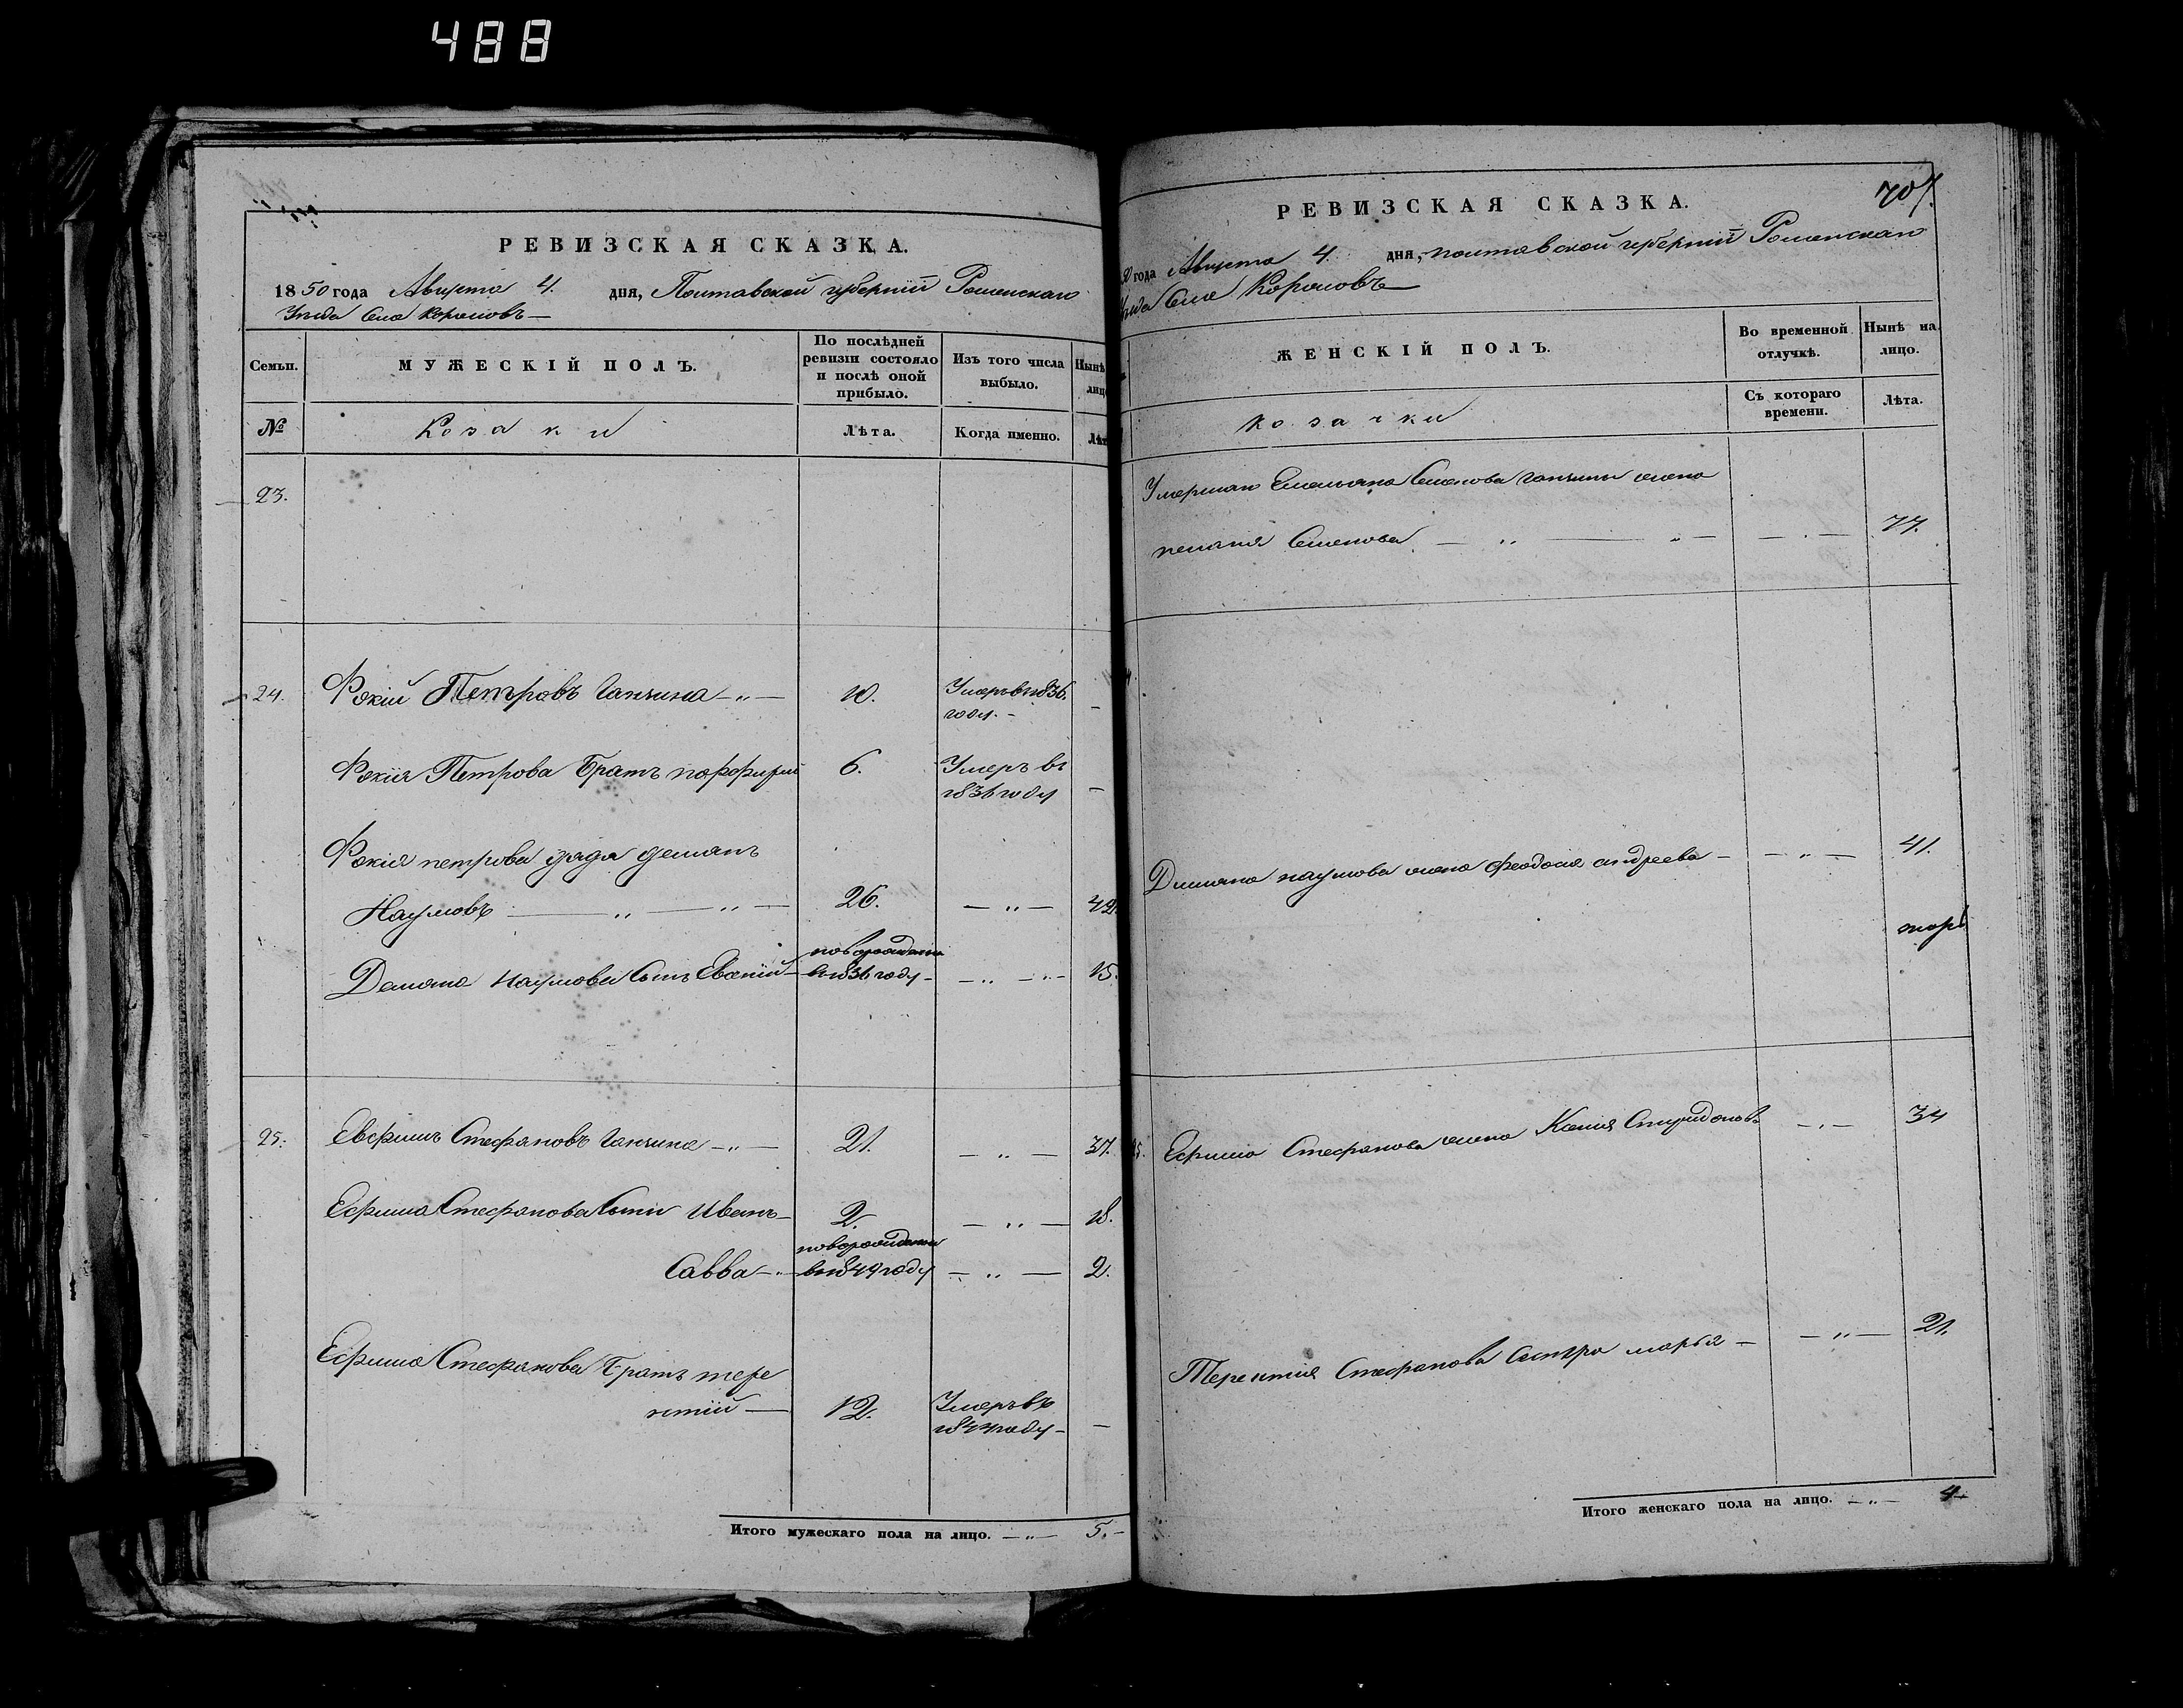 488
РЕВИЗСКАЯ СКАЗКА.
1850 года Августа 4. дня, Полтавской губернiи Роменскаго
Уезда Села Корововъ
Семьи.
МУЖЕСКIЙ ПОЛЪ.
По послѣдней ревизiи состояло и послѣ оной прибыло.
Изъ того числа выбыло.
Нынѣ
лиц
№
Козаки
Лѣта.
Когда именно.
Лѣт
23.
24. Фокiй Петровъ Ганчина 10. Умеръ в 1836.
году.
Фокiя Петрова Братъ порфирiй 6. Умеръ въ
1836 году
Фокiя петрова дядя демянъ
Наумовъ 26. 42.
Демяна Наумова Сынъ новорожденъ
в 1836 году 15.
25. Евфимъ Стефановъ Ганчина 21. 37.
Ефима Стефанова Сыни Иванъ 2. 18.
Савва новорожденъ
в 1849 году 2.
Ефима Стефанова Братъ тере
нтiй 12. Умеръ въ
1844 году
Итого мужескаго пола на лицо. 5.
707.
РЕВИЗСКАЯ СКАЗКА.
0 года Августа 4. дня, полтавской губернiи Роменскаго
Уезда Села Корововъ
ЖЕНСКIЙ ПОЛЪ.
Во временной отлучкѣ.
Нынѣ на лицо.
козачки
Съ котораго времени.
Лѣта.
Умершаго Емельяна Семенова ганчины жена
пелагiя Семенова 77.
Демяна наумова жена феодосiя андреева 41.
25. Ефима Стефанова жена Ксенiя Спиридонова 34
Терентiя Стефанова Сестра марья 21.
Итого женскаго пола на лицо. 4